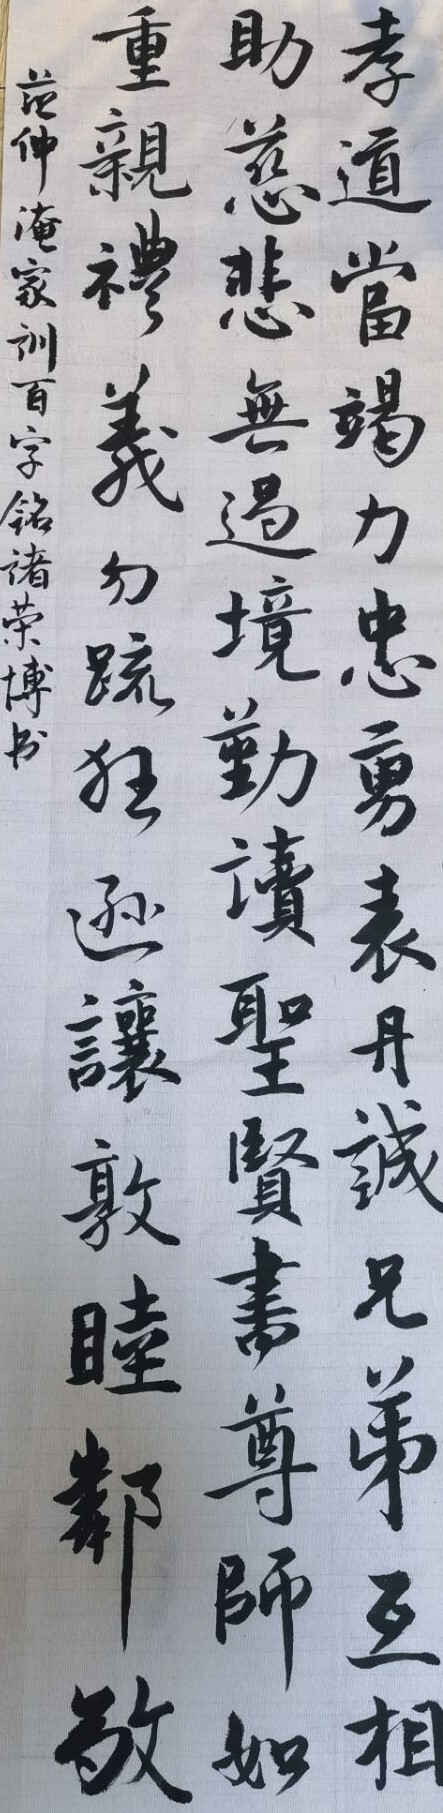 孝道當竭力忠勇表丹誠兄弟互相
助慈悲無過境勤讀聖賢書尊師如
重親禮義勿疏狂遜讓敦睦鄰敬
范仲淹家訓百字銘諸荣博书